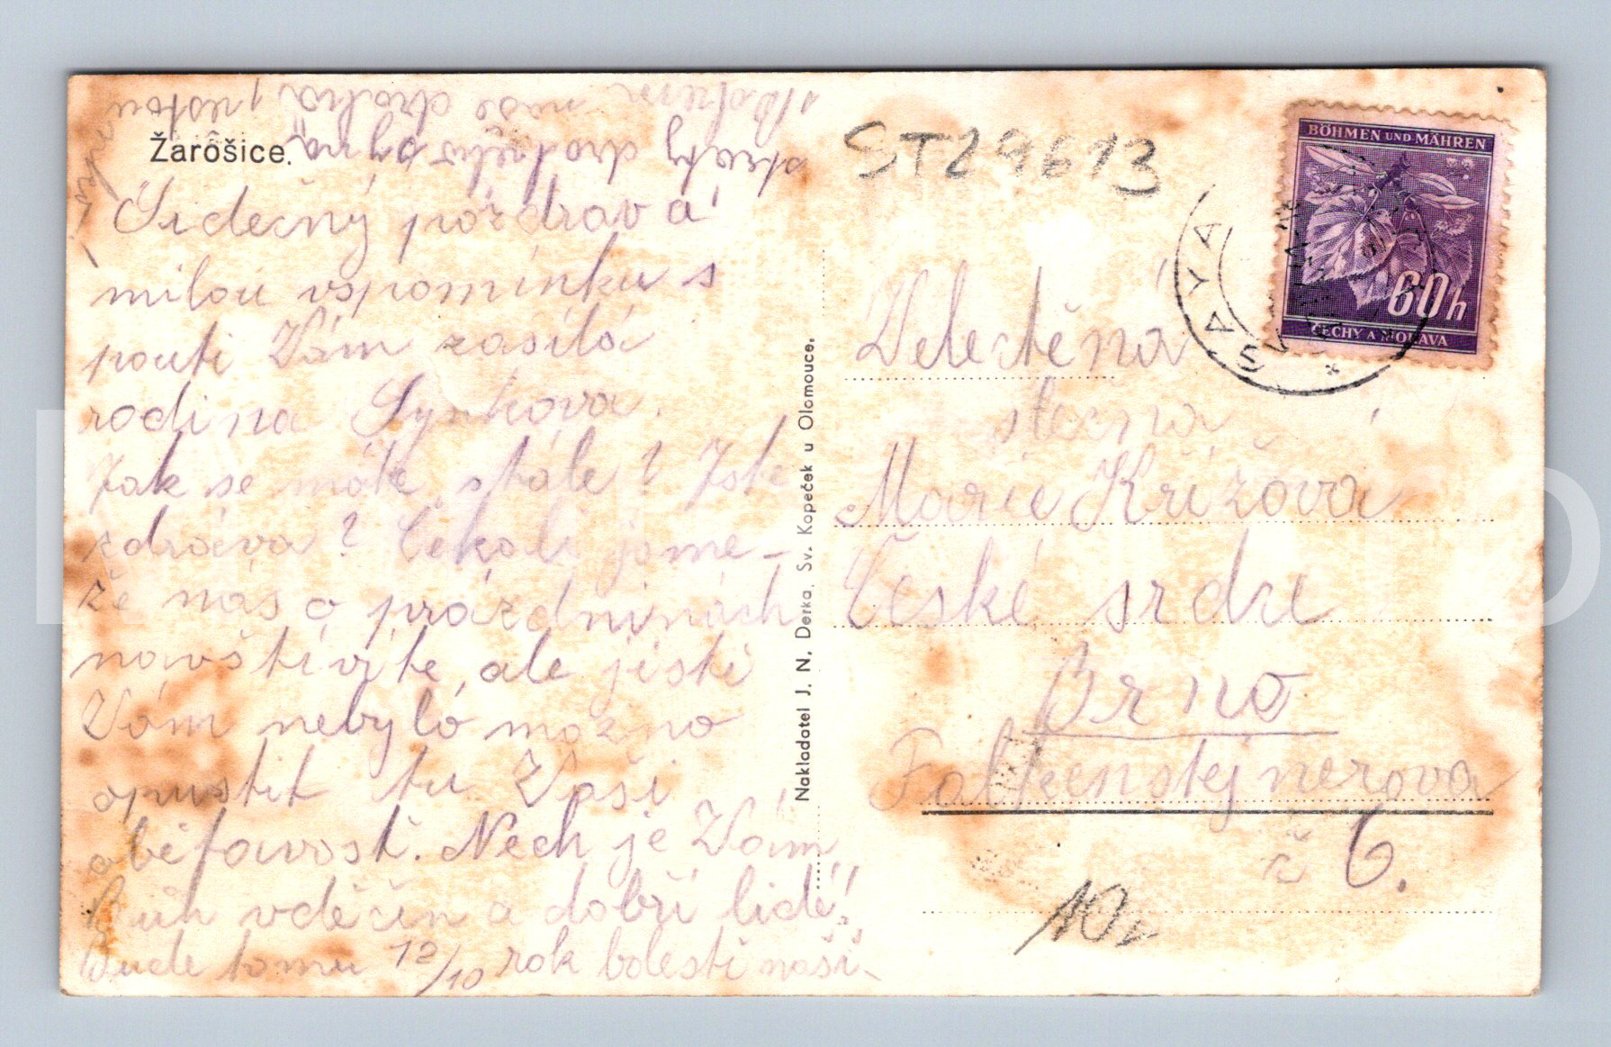 Žarošice.
Srdečný pozdrav a
milou vspomínku s
pouti Vám zasílá
rodina Synkova.
Jak se máte stále? Jste
zdráva? Čekali jsme-
že nás o prázdninách
navštívíte, ale jistě
Vám nebylo možno
opustit tu Vaši
obětavost. Nech je Vám
Bůh vděčín a dobří lidé!
Bude tomu 12/10 rok bolesti naší
ztráty drahého syna
naše drahá
Nakladatel J. N. Derka, Sv. Kopeček u Olomouce.
ST29613
BÖHMEN UND MÄHREN
60h
ČECHY A MORAVA
Velectěná
slečna
Marie Křížová
České srdce
Brno
Falkenstejnerova
č 6.